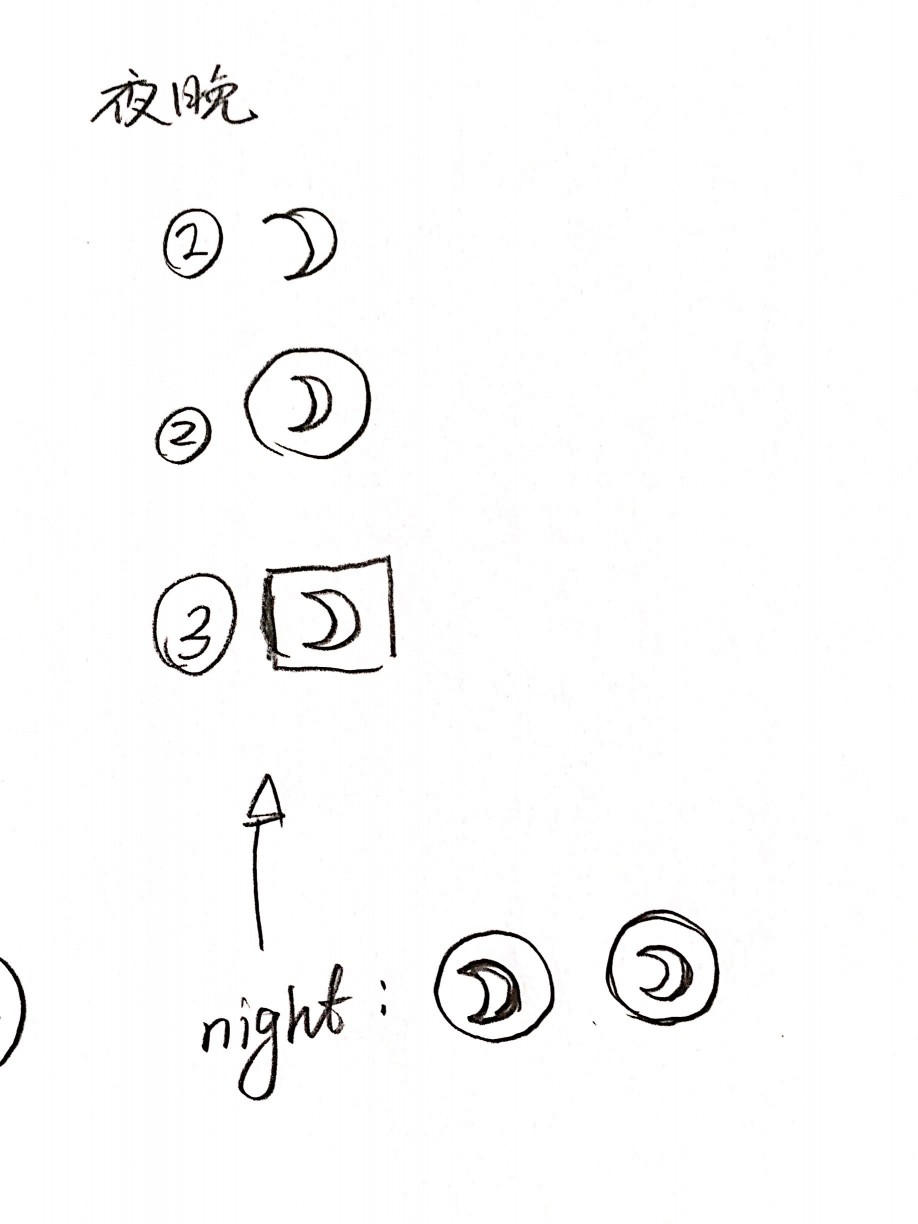 夜晚
①
②
③
night: